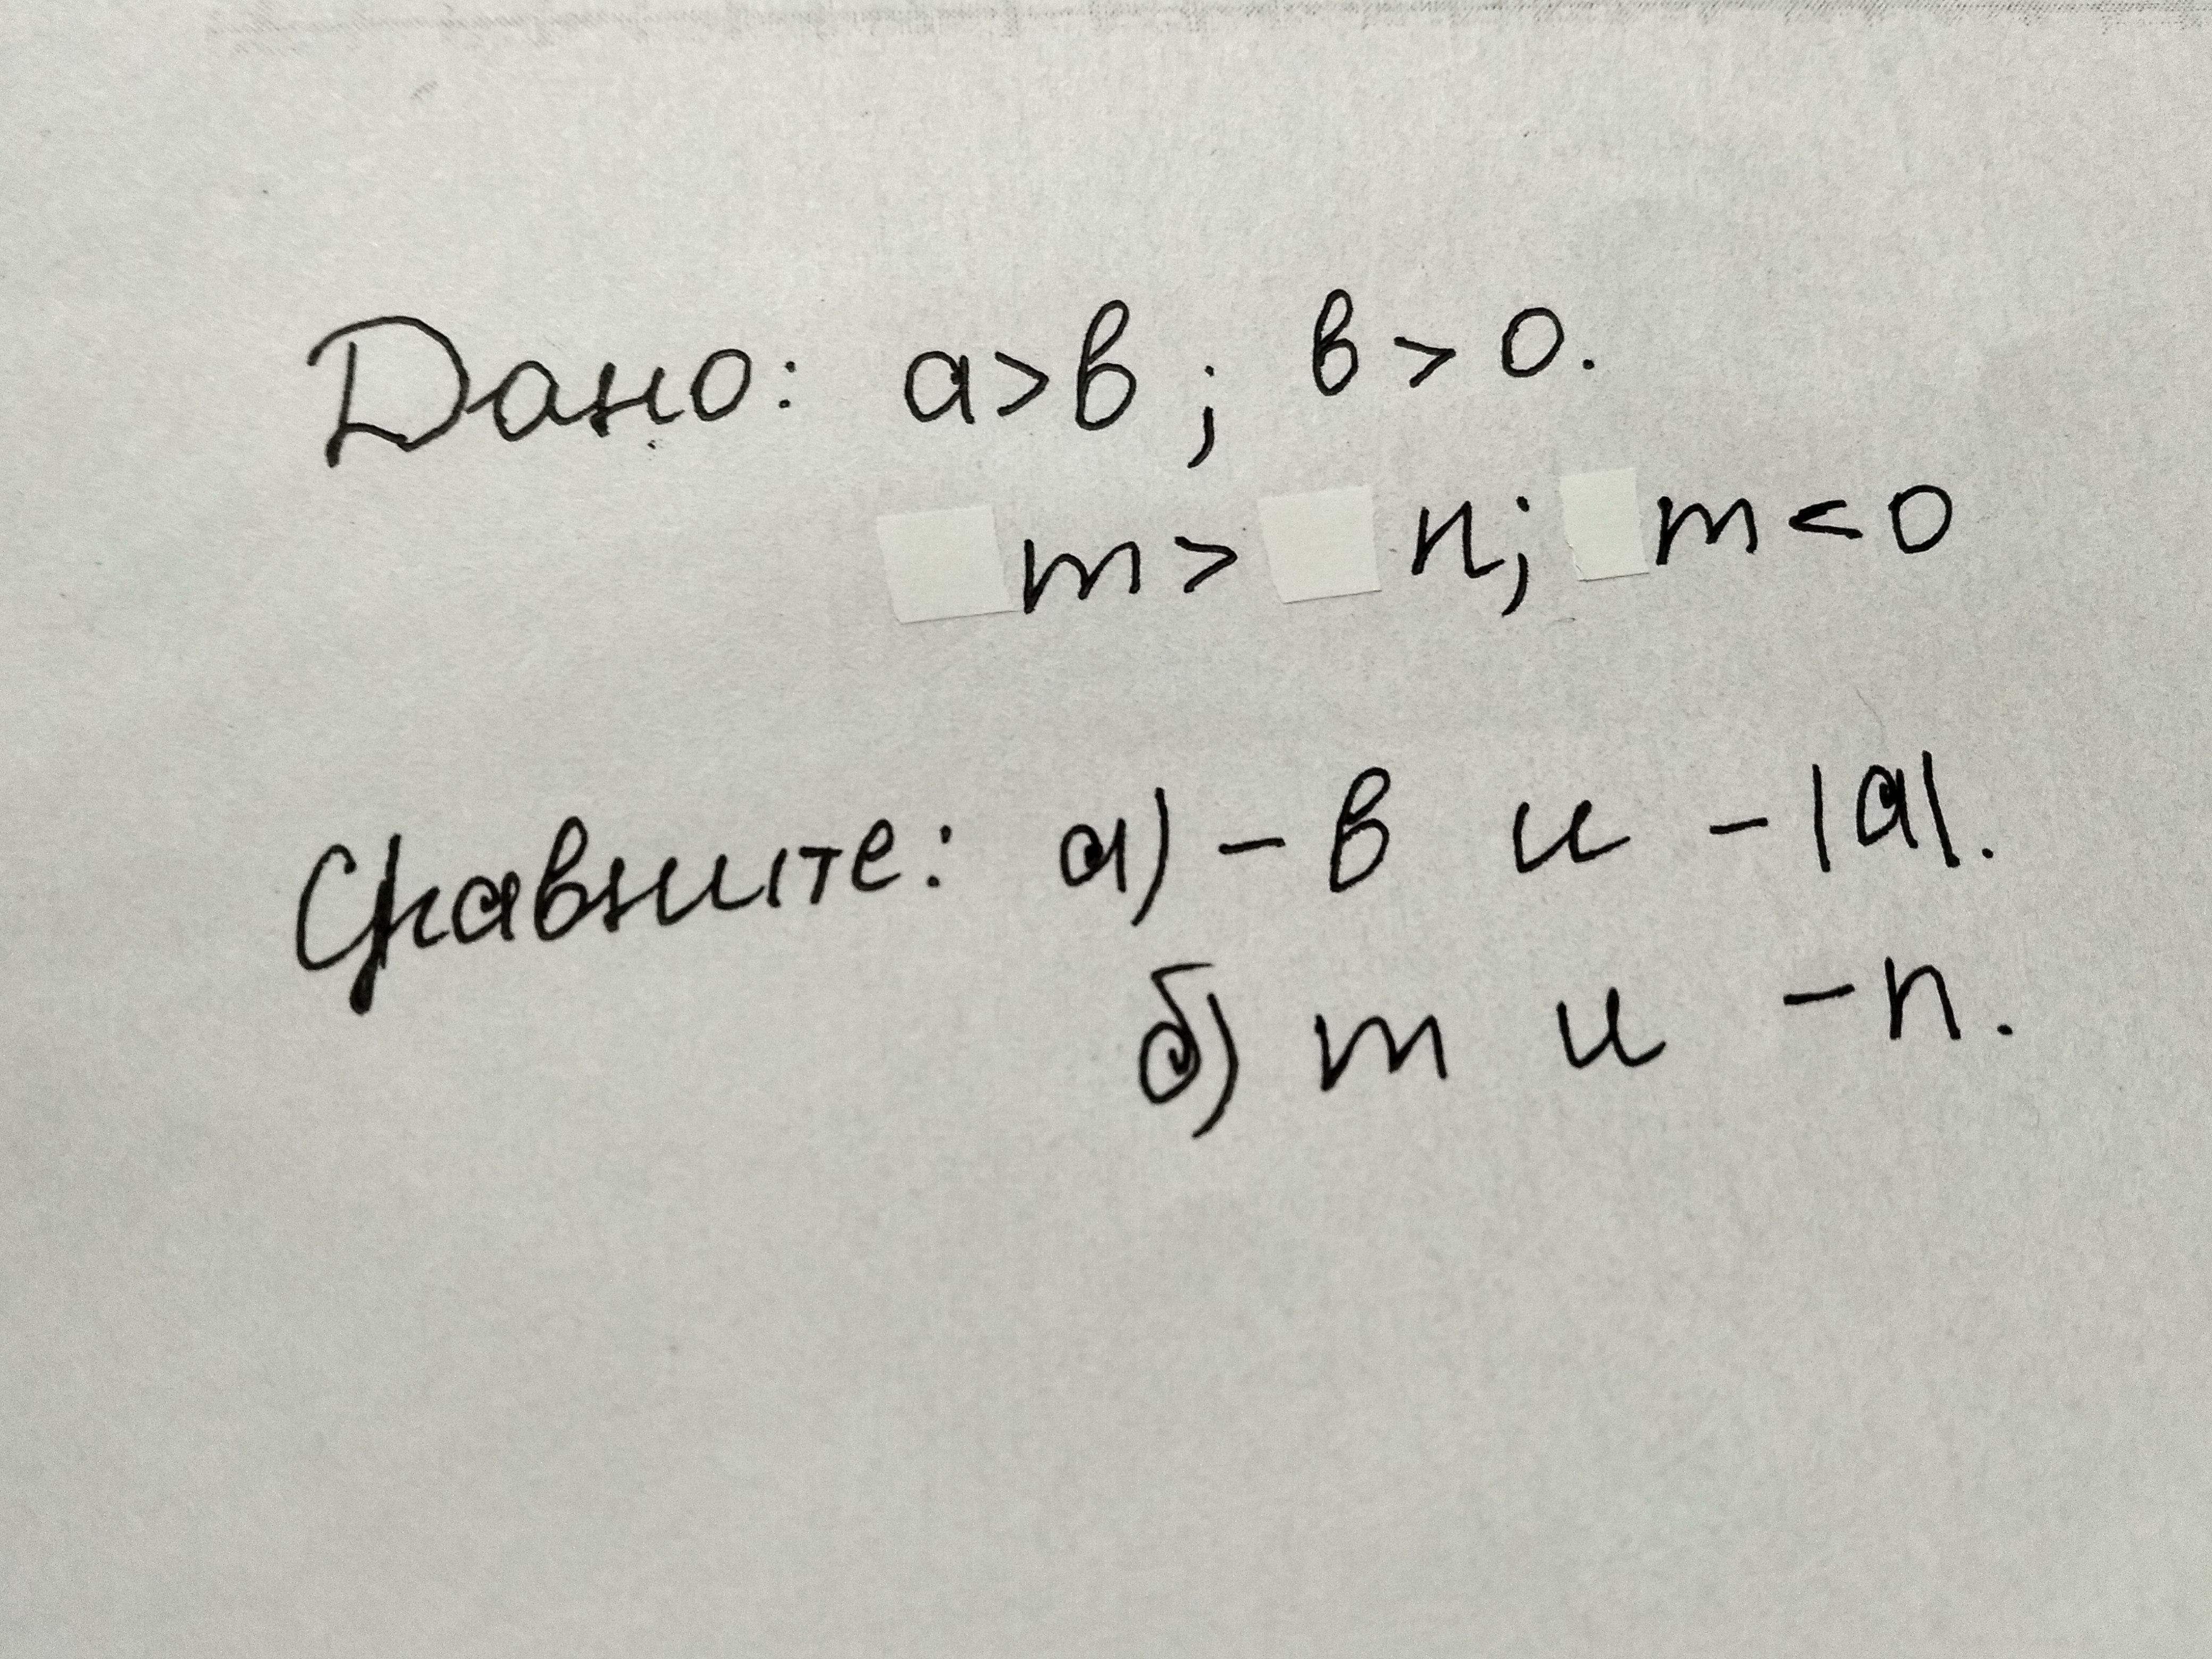 Дано: a>в; в>0.
m> n; m<0
Сравните: а) -в и -|a|.
б) m и -n.